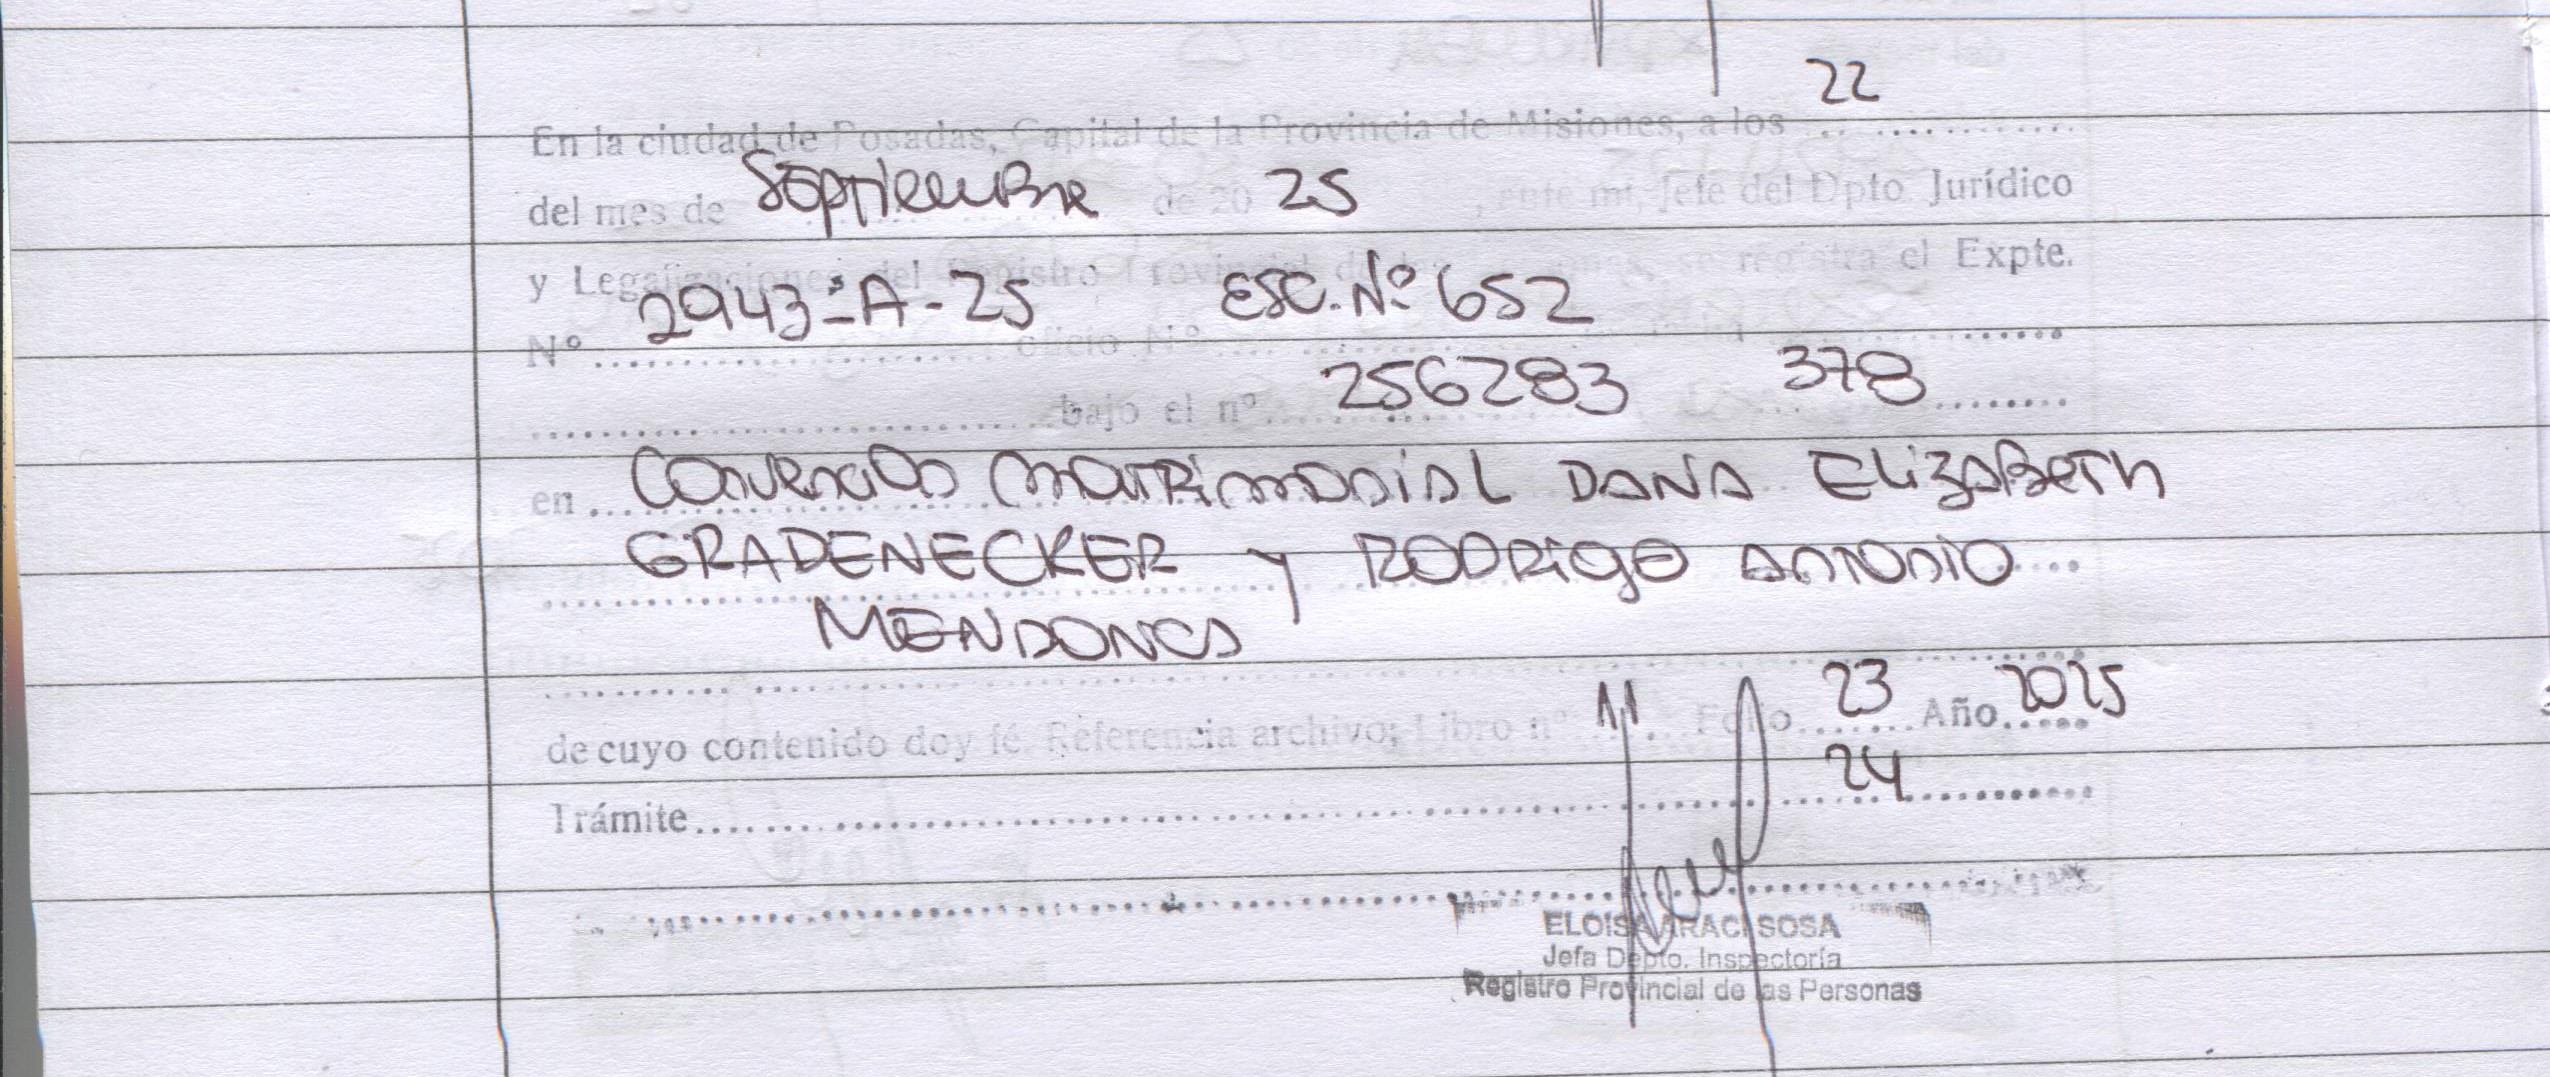 En la ciudad de Posadas, Capital de la Provincia de Misiones, a los 22
del mes de Septiembre de 20 25, ante mi, Jefe del Dpto. Jurídico
y Legalizaciones del Registro Provincial de las Personas, se registra el Expte.
Nº 2943-A-25 oficio Nº ESC. Nº 652
bajo el nº 256283 378
en Convencion Matrimonial DANA ELIZABETH
GRADENECKER y RODRIGO ANTONIO
MENDONCA
de cuyo contenido doy fé. Referencia archivo; Libro nº 11 Folio 23 Año 2025
24
Trámite
ELOISA ARACI SOSA
Jefa Depto. Inspectoría
Registro Provincial de las Personas